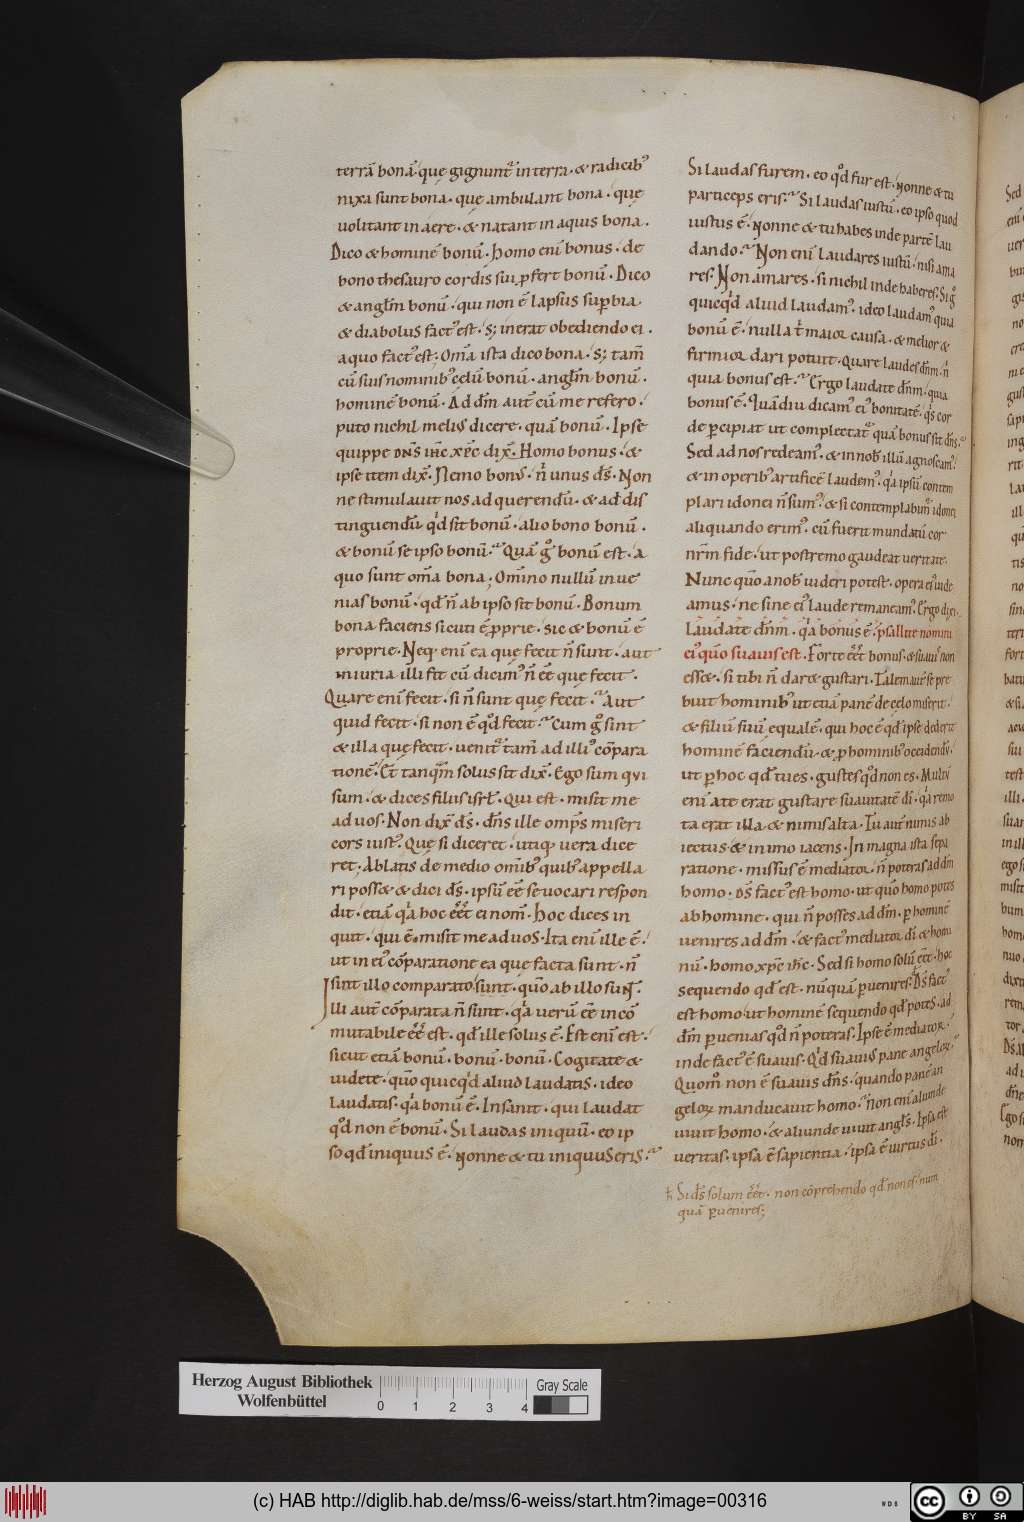 terrā bonā. quę gignunt᷒ in terra. & radicib᷒
nixa sunt bona. quę ambulant bona. quę
uolitant in aere. & natant in aquis bona.
Dico & hominē bonū. homo eni bonus. de
bono thesauro cordis sui ꝓfert bonū. Dico
& anglm̄ bonū. qui non ē lapsus supbia.
& diabolus fact᷒ est. s; inerat obediendo ei.
a quo fact᷒ est. Om̄a ista dico bona. s; tam̄
cū suis nominib᷒ cęlū bonū. anglm̄ bonū.
hominē bonū. Ad dm̄ aut̄ cū me refero.
puto nichil meli᷒ dicere. quā bonū. Ipse
quippe dn̄s ih̄c xp̄c dix̄. Homo bonus. &
ipse item dix̄. Nemo bon᷒. n̄ unus ds̄. Non
ne stimulauit nos ad querendū. & ad dis
tinguendū. qd sit bonū. alio bono bonū.
& bonū se ipso bonū. Quā gͦ bonū est. a
quo sunt om̄a bona; Om̄ino nullū inue
nias bonū. qd n̄ ab ipso sit bonū. Bonum
bona faciens sicuti ē ꝓprie. sic & bonū ē
proprie. Neq; eni ea quę fecit n̄ sunt. aut
iniuria illi fit cū dicim᷒ n̄ ēē quę fecit.
Quare eni fecit. si n̄ sunt quę fecit. Aut
quid fecit. si non ē qd fecit. Cum gͦ sint
& illa quę fecit. uenit᷒ tam̄ ad illi᷒ cōpara
tionē. Et tanqm̄ solus sit dix̄. Ego sum qui
sum. & dices filiis isrl̄. Qui est. misit me
ad uos. Non dix̄ ds̄. dn̄s ille omp̄s miseri
cors iust᷒. Quę si diceret. utiq; uera dice
ret. Ablatis de medio om̄ib᷒ quib᷒ appella
ri poss& & dici ds̄. ipsū ēē se uocari respon
dit. etiā qa hoc ēēt ei nom̄. hoc dices in
quit. qui ē. misit me ad uos. Ita eni ille ē.
ut in ei᷒ cōparatione ea quę facta sunt. n̄
sint illo comparato. sunt. qūo ab illo sunt.
Illi aut̄ cōparata n̄ sunt. qa uerū ēē incō
mutabile ēēt est. qd ille solus ē. Est eni est.
sicut etiā bonū. bonū. bonū. Cogitate &
uidete. qūo quicqd aliud laudatis. ideo
laudatis. qa bonū ē. Insanit. qui laudat
qd non ē bonū. Si laudas iniquū. eo ip
so qd iniquus ē. nonne & tu iniquus eris.
Si laudas furem. eo qd fur est. nonne & tu
particeps eris. Si laudas iustū. eo ipso quod
iustus ē. nonne & tu habes inde partē lau
dando. Non eni laudares iustū. nisi ama
res. Non amares. si nichil inde haberes. Si gͦ
quicqd aliud laudam᷒. ideo laudam᷒ quia
bonū ē. nulla t̄ maior causa. & melior &
firmior dari potuit. Quare laudes dn̄m. n̄
quia bonus est. Ergo laudate dn̄m. quia
bonus ē. Quādiu dicam᷒ ei᷒ bonitatē. qs cor
de pcipiat ut complectat᷒ quā bonus sit dn̄s.
Sed ad nos redeam᷒. & in nob illū agnoscam᷒.
& in operib᷒ artificē laudem᷒. qa ipsū contem
plari idonei n̄ sum᷒. & si contemplabunt᷒ idonei
aliquando erim᷒. cū fuerit mundatū cor
nr̄m fide. ut postremo gaudeat ueritate.
Nunc qūo a nob uideri potest. opera ei᷒ uide
amus. ne sine ei᷒ laude remaneam᷒. Ergo dixi.
Laudate dn̄m. qa bonus ē. psallite nomini
ei᷒ qūo suauis est. Forte ēēt bonus. & suauis non
ess&. si tibi n̄ dar& gustari. Talem aut̄ se pre
buit hominib᷒ ut etiā panē de cęlo miserit.
& filiū suū equalē. qui hoc ē qd ipse dederit
hominē faciendū. & p hominib᷒ occidendū.
ut p hoc qd tu es. gustes qd non es. Multū
eni a te erat gustare suauitatē di. qa remo
ta erat illa & nimis alta. Tu aut̄ nimis ab
iectus & in imo iacens. In magna ista sepa
ratione. missus ē mediator. n̄ poteras ad dm̄
homo. Ds̄ fact᷒ est homo. ut qūo homo potes
ab homine. qui n̄ posses ad dm̄. p hominē
uenires ad dm̄. & fact᷒ mediator di & homi
nū. homo xp̄c ih̄c. Sed si homo solū ēēt. hoc
sequendo qd est. nūquā puenires. Ds̄ fact᷒
est homo. ut hominē sequendo qd potes. ad
dm̄ puenias qd n̄ poteras. Ipse ē mediator.
inde fact᷒ ē suauis. Qd suaui᷒ pane angelor.
Quom̄ non ē suauis dn̄s. quando panē an
gelor manducauit homo. n̄ non eni aliunde
uiuit homo. & aliunde uiuit angls̄. Ipsa est
ueritas. ipsa ē sapientia. ipsa ē uirtus di.
Si ds̄ solum ēēt. non cōprehendo qd non es. num
quā puenires;
Herzog August Bibliothek
Wolfenbüttel
Gray Scale
0 1 2 3 4
(c) HAB http://diglib.hab.de/mss/6-weiss/start.htm?image=00316
cc BY SA